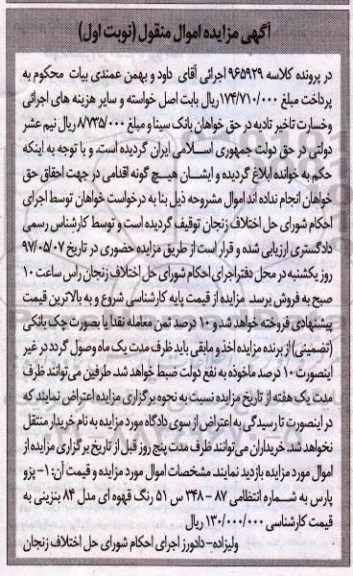 آگهی مزایده اموال منقول (نوبت اول)
در پرونده کلاسه ۹۶۵۹۲۹ اجرائی آقای داود و بهمن عمندی بیات محکوم به
پرداخت مبلغ ۱۷۴/۷۱۰/۰۰۰ ریال بابت اصل خواسته و سایر هزینه های اجرائی
وخسارت تاخیر تادیه در حق خواهان بانک سینا و مبلغ ۸/۷۳۵/۰۰۰ ریال نیم عشر
دولتی در حق دولت جمهوری اسلامی ایران گردیده است. و با توجه به اینکه
حکم به خوانده ابلاغ گردیده و ایشان هیچ گونه اقدامی در جهت احقاق حق
خواهان انجام نداده اند اموال مشروحه ذیل بنا به درخواست خواهان توسط اجرای
احکام شورای حل اختلاف زنجان توقیف گردیده است و توسط کارشناس رسمی
دادگستری ارزیابی شده و قرار است از طریق مزایده حضوری در تاریخ ۹۷/۰۵/۰۷
روز یکشنبه در محل دفتر اجرای احکام شورای حل اختلاف زنجان راس ساعت ۱۰
صبح به فروش برسد. مزایده از قیمت پایه کارشناسی شروع و به بالاترین قیمت
پیشنهادی فروخته خواهد شد و ۱۰ درصد ثمن معامله نقدا یا بصورت چک بانکی
(تضمینی) از برنده مزایده اخذ و مابقی باید ظرف مدت یک ماه وصول گردد در غیر
اینصورت ۱۰ درصد ماخوذه به نفع دولت ضبط خواهد شد. طرفین می توانند ظرف
مدت یک هفته از تاریخ مزایده نسبت به نحوه برگزاری مزایده اعتراض نمایند که
در اینصورت تا رسیدگی به اعتراض از سوی دادگاه مورد مزایده به نام خریدار منتقل
نخواهد شد. خریداران می توانند ظرف مدت پنج روز قبل از تاریخ برگزاری مزایده از
اموال مورد مزایده بازدید نمایند. مشخصات اموال مورد مزایده و قیمت آن: ۱- پژو
پارس به شماره انتظامی ۸۷ - ۳۴۸ س ۵۱ رنگ قهوه ای مدل ۸۴ بنزینی به
قیمت کارشناسی ۱۳۰/۰۰۰/۰۰۰ ریال
ولیزاده- دادورز اجرای احکام شورای حل اختلاف زنجان